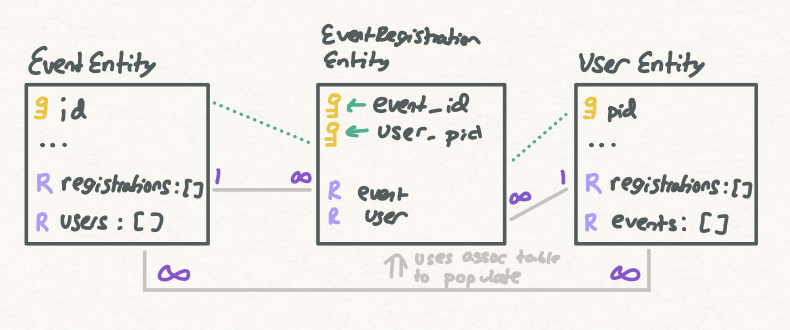 Event Entity
id
...
R registrations:[]
R users : []
EventRegistration
Entity
← event_id
← user_pid
R event
R user
User Entity
pid
...
R registrations:[]
R events: []
1
∞
∞
1
uses assoc table
to populate
∞
∞